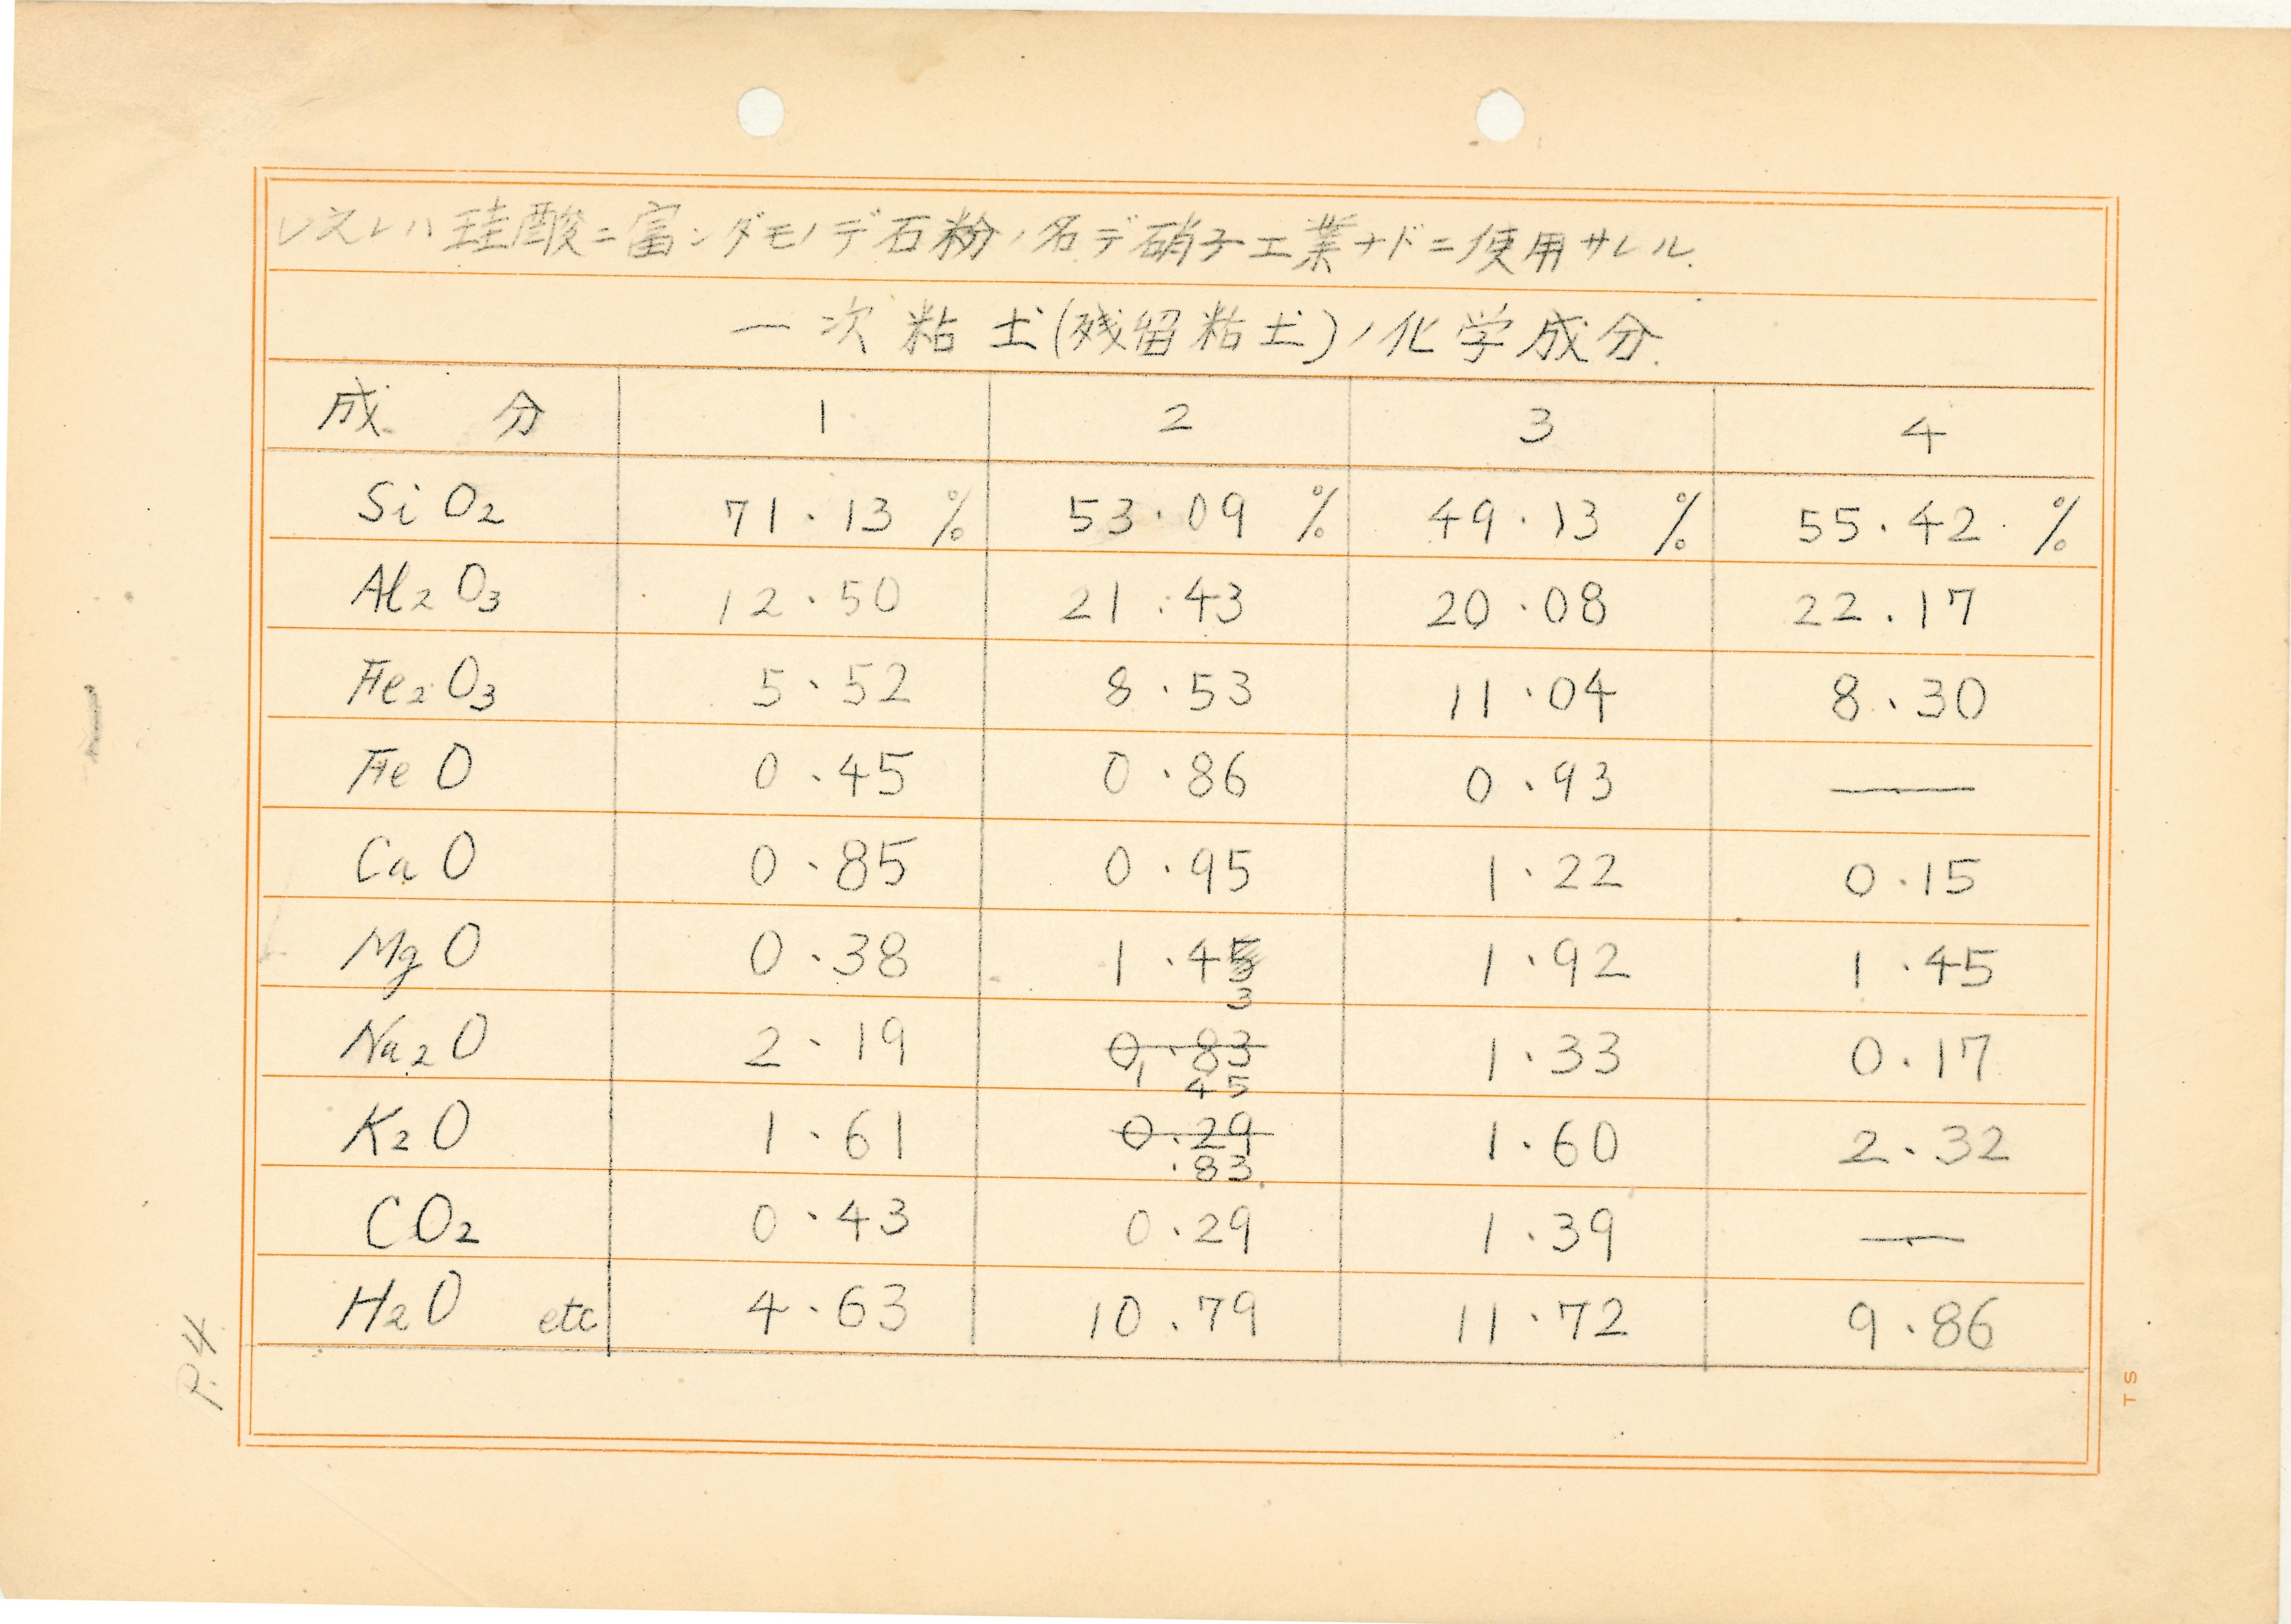 シヌルハ珪酸ニ富ンダモノデ石粉ノ名デ硝子工業ナドニ使用サレル.
一次粘土(残留粘土)ノ化学成分.
成 分 1 2 3 4
SiO2 71.13 % 53.09 % 49.13 % 55.42 %
Al2O3 12.50 21.43 20.08 22.17
Fe2O3 5.52 8.53 11.04 8.30
FeO 0.45 0.86 0.93 —
CaO 0.85 0.95 1.22 0.15
MgO 0.38 1.45 3 1.92 1.45
Na2O 2.19 0.83 1 45 1.33 0.17
K2O 1.61 0.29 .83 1.60 2.32
CO2 0.43 0.29 1.39 —
H2O etc 4.63 10.79 11.72 9.86
P.4
TS